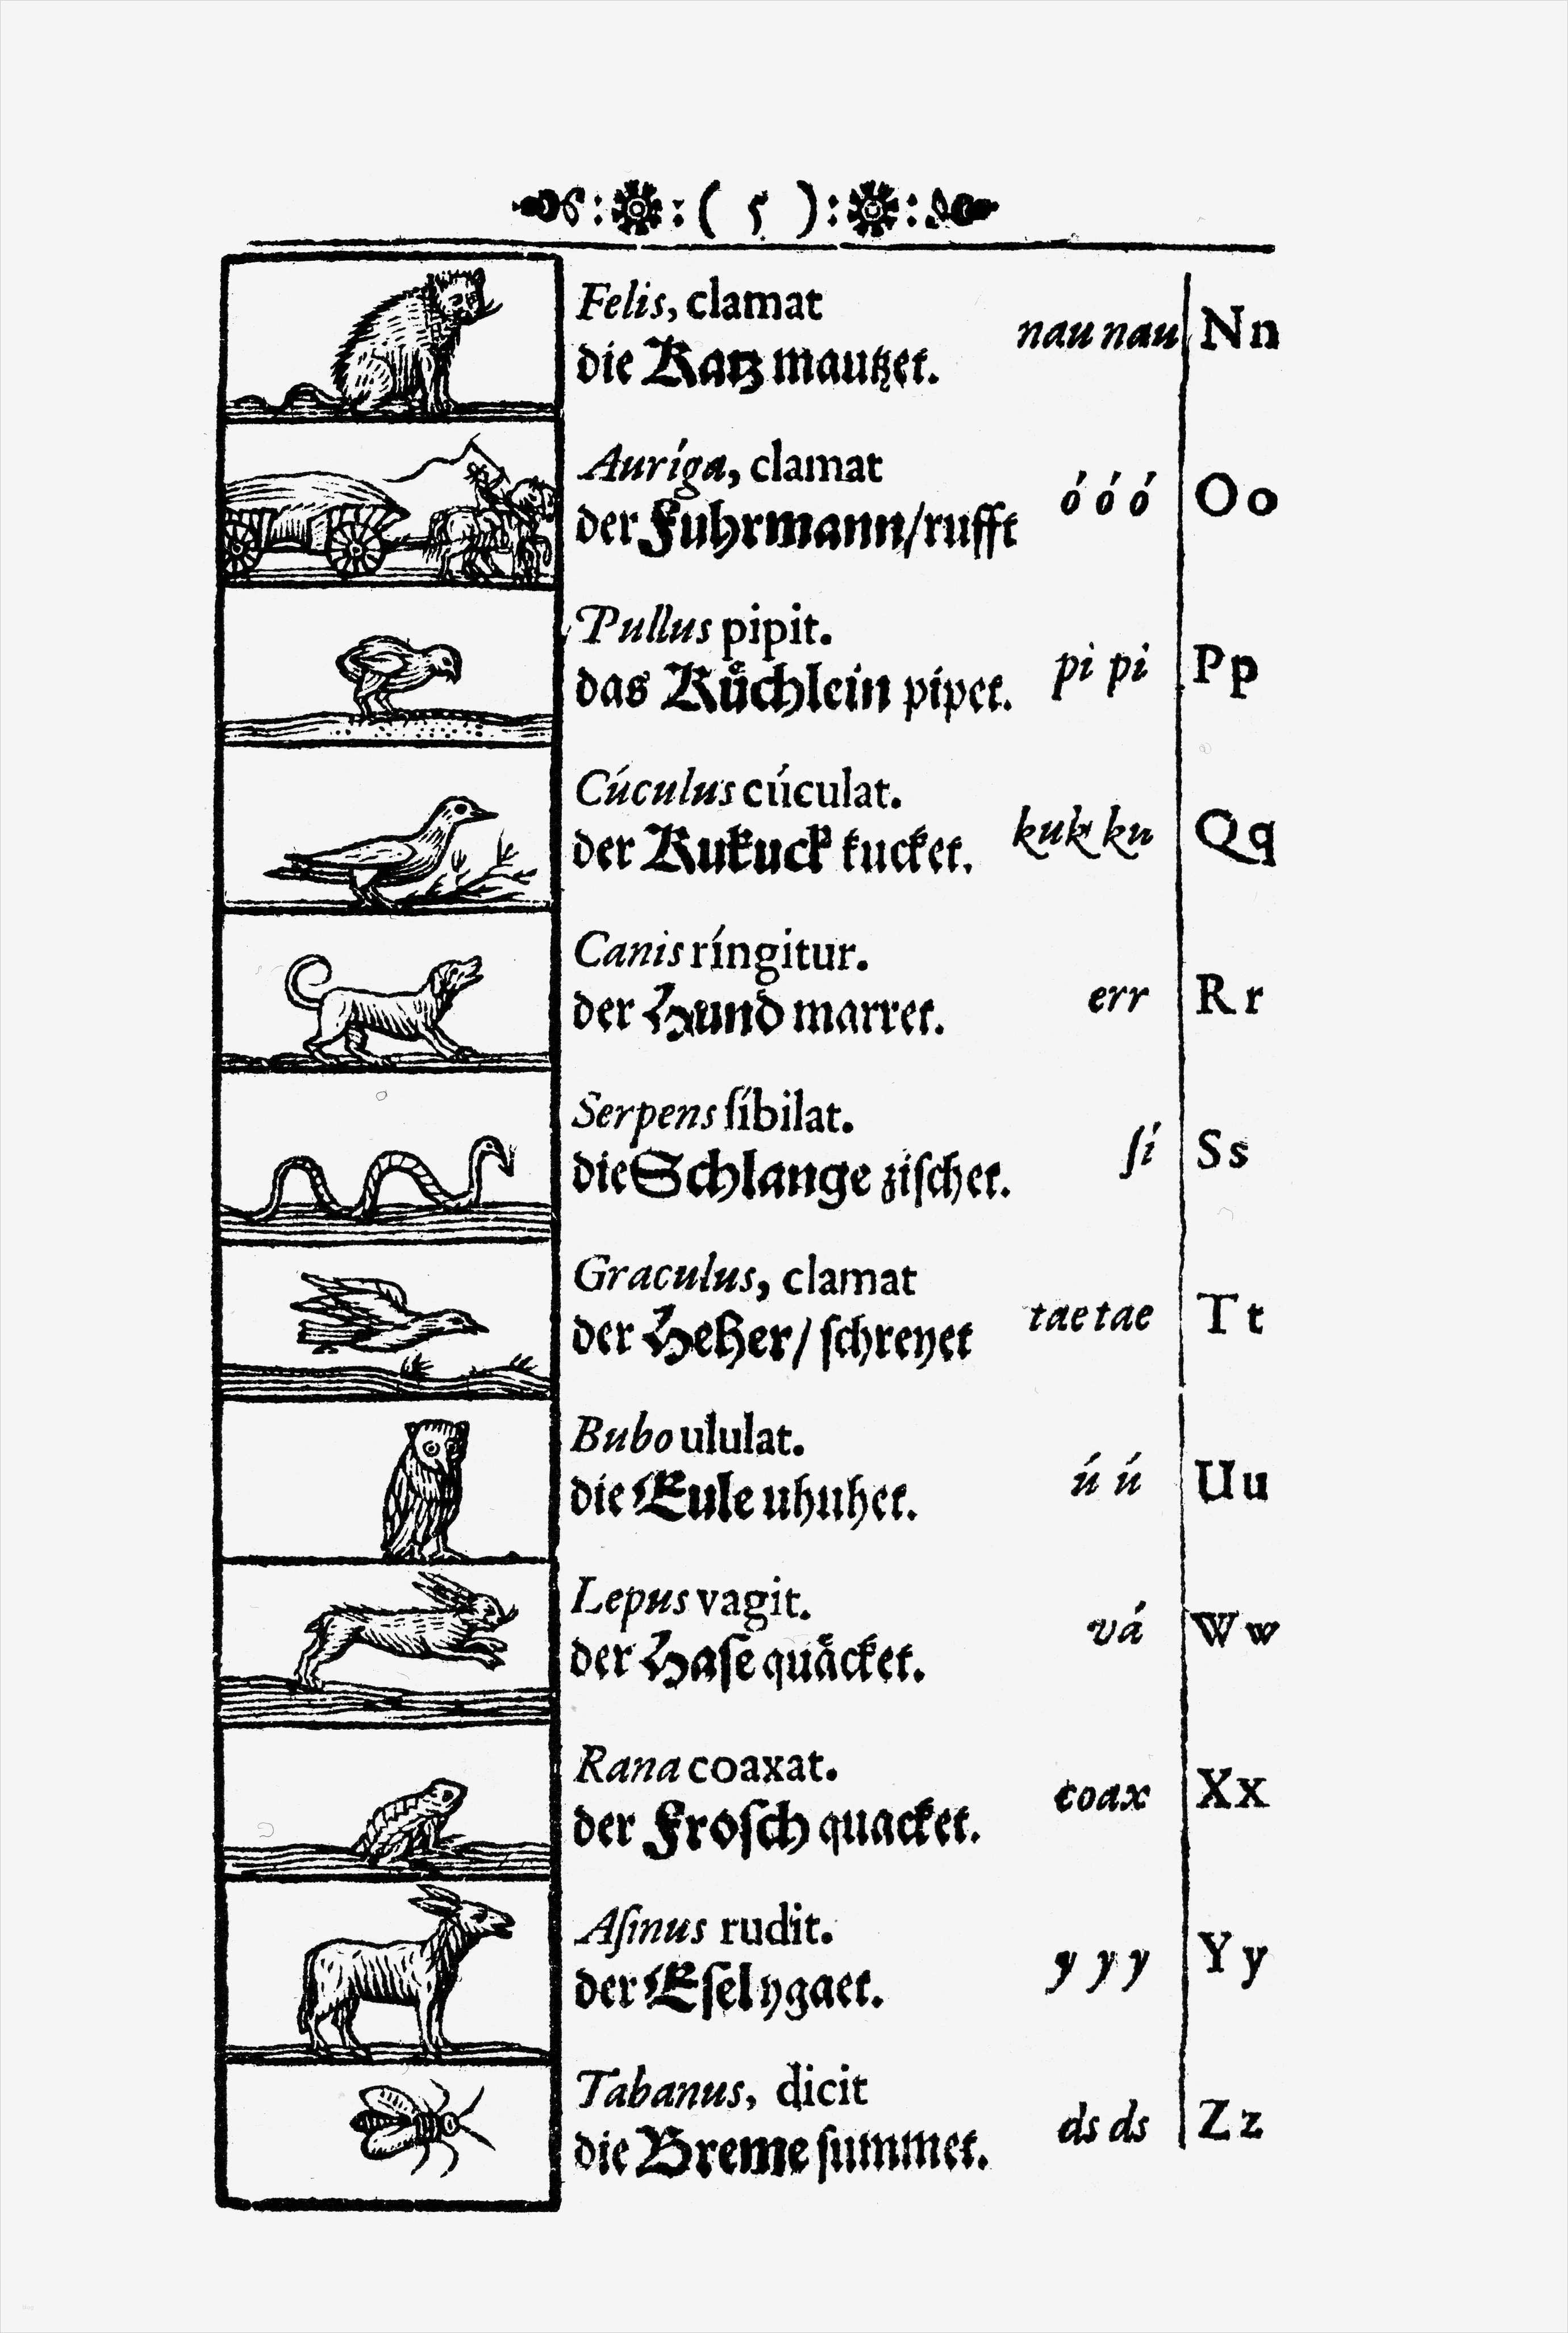 ( 5 )
Felis, clamat
die Katz mautzet. nau nau Nn
Auríga, clamat
der Fuhrmann/rufft ó ó ó Oo
Pullus pipit.
das Kuͤchlein pipet. pi pi Pp
Cúculus cúculat.
der Kukuck kucket. kuk ku Qq
Canis ríngitur.
der Hund marret. err Rr
Serpens ſíbilat.
die Schlange ziſchet. ſí Ss
Graculus, clamat
der Heher/ ſchreyet tae tae Tt
Bubo ululat.
die Eule uhuhet. ú ú Uu
Lepus vagit.
der Haſe quaͤcket. vá Ww
Rana coaxat.
der Froſch quacket. coax Xx
Aſinus rudit.
der Eſel ygaet. y y y Yy
Tabanus, dicit
die Breme ſummet. ds ds Zz